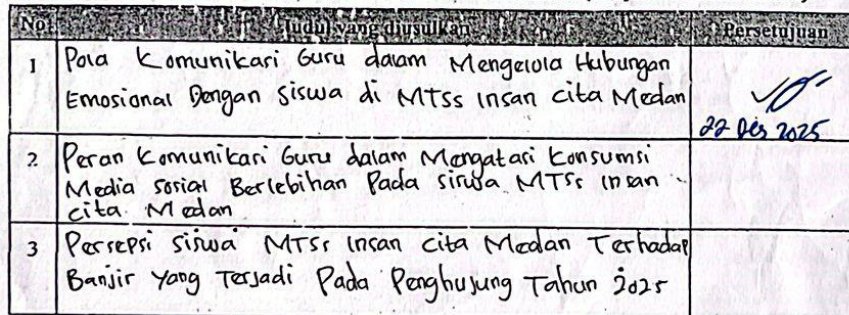 No Judul yang diusulkan Persetujuan
1 Pola Komunikasi Guru dalam Mengelola Hubungan
Emosional Dengan siswa di MTSs Insan Cita Medan
22 Des 2025
2. Peran Komunikasi Guru dalam Mengatasi Konsumsi
Media Sosial Berlebihan Pada siswa MTSs insan
cita. Medan
3 Persepsi siswa MTSs Insan Cita Medan Terhadap
Banjir Yang Terjadi Pada Penghujung Tahun 2025